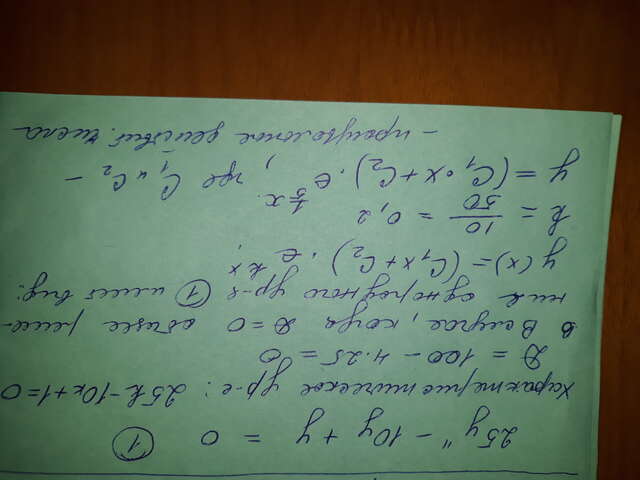 25y" - 10y + y = 0 (1)
характеристическое ур-е: 25k - 10k + 1 = 0
D = 100 - 4.25 = 0
в В случае, когда D = 0 общее реше-
ние однородного ур-е (1) имеет вид:
y(x) = (C₁x + C₂) · e^kx.
k = 10/50 = 0,2
y = (C₁ · x + C₂) · e^⅕x., где C₁ и C₂ -
- произвольные действит. числа